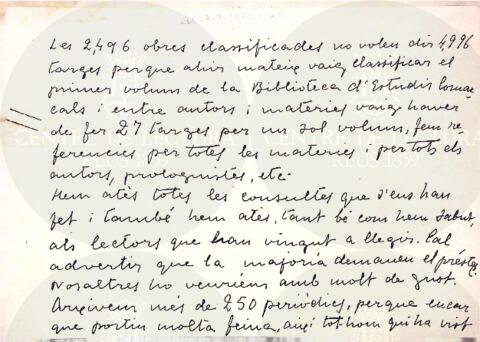 Les 2,496 obres classificades no volen dir 4,996
targes perque ahir mateix vaig classificar el
primer volum de la Biblioteca d'Estudis Comar
cals i entre autors i materies vaig haver
de fer 27 targes per un sol volum, fem re
ferencies per totes les materies i per tots els
autors, prologuistes, etc.
Hem atès totes les consultes que s'ens han
fet i també hem atés, tant bé com hem sabut,
als lectors que han vingut a llegir. Cal
advertir que la majoria demanen el préstec
Nosaltres ho veuriem amb molt de gust.
Arxivem més de 250 periòdics, perque encar
que portin molta feina, aixi tothom qui ha vist